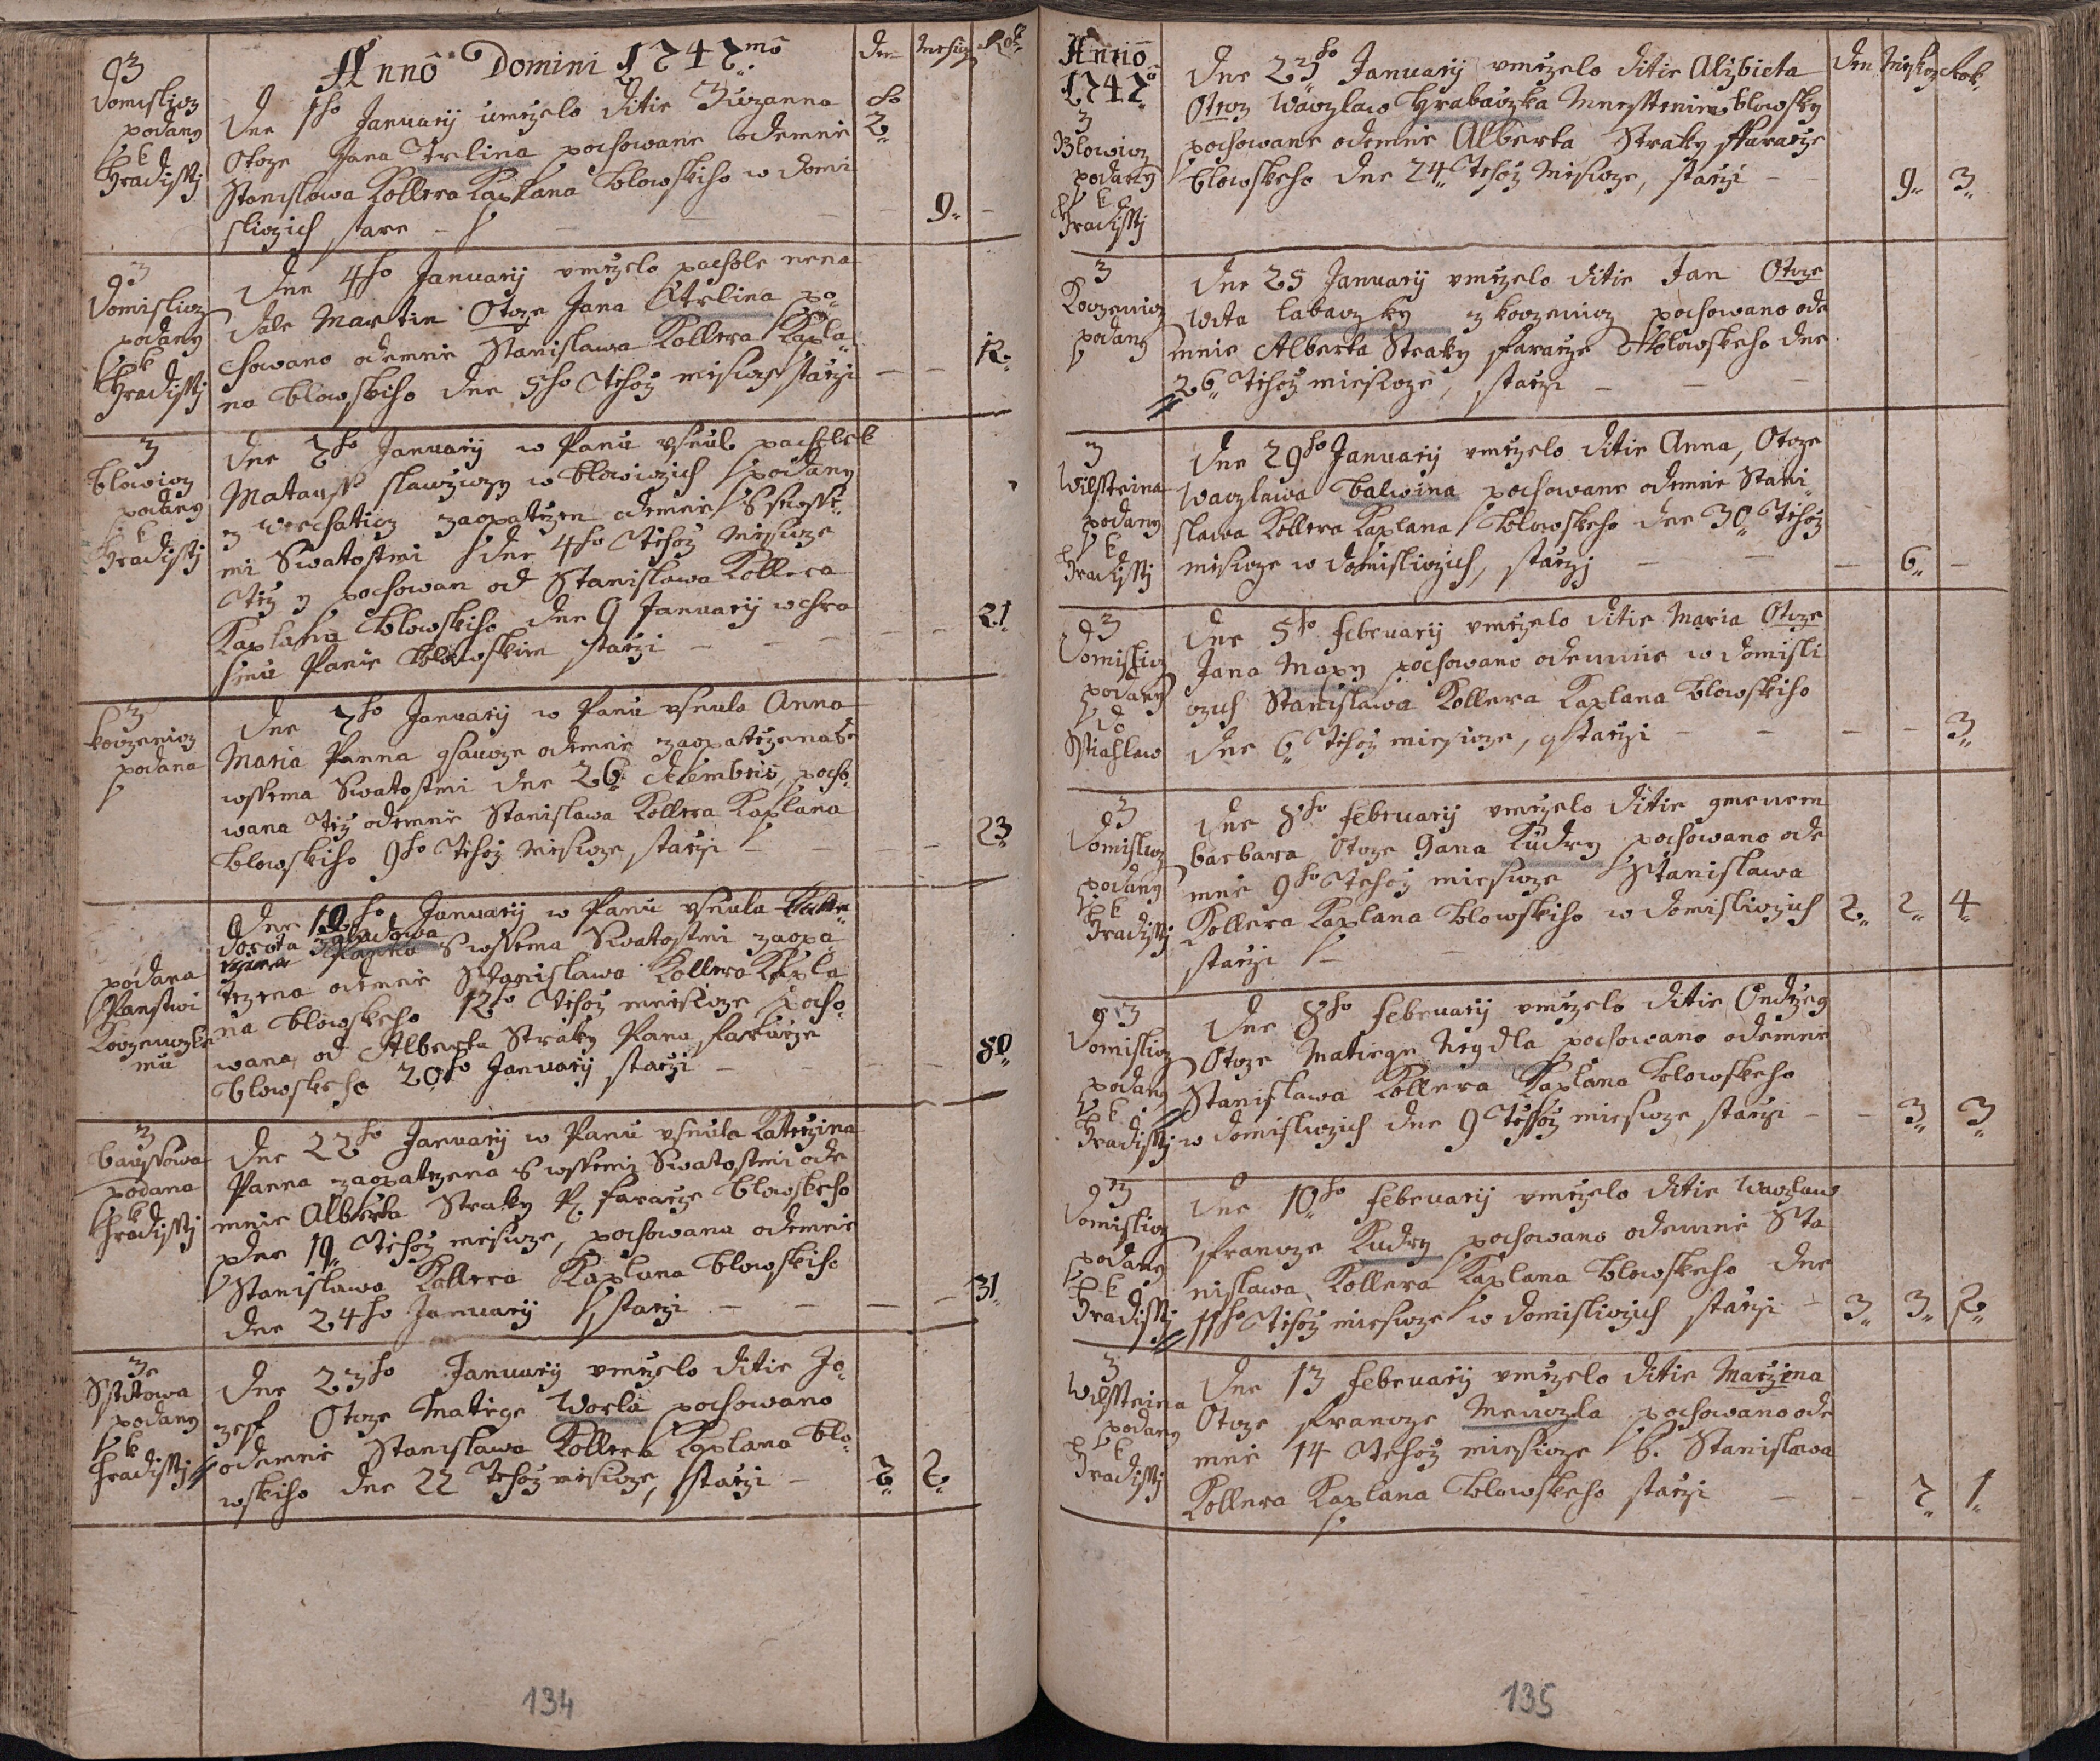 Annô Domini 1747mô
den Mesicz Rok
Z
Domisliczz
podany
k
Hradissti
Dne 1ho Januarij umrzelo ditie Zuzanna
Otcze Jana Trlina pochowane odemnie
Stanislawa Kollera Kaplana blowskiho w domi
sliczich stare
2
9
Z
Domislicz
podany
k
Hradissti
Dne 4ho Januarij umrzelo pachole nena
dale Martin Otcze Jana Trlina po
chowano odemnie Stanislawa Kollera Kapla
na blowskiho dne 5ho Tehoz misicze starzi
12
Z
blowicz
podany
k
Hradissti
Dne 7ho Januarij w Panu usnul pacholek
Matauss slauziczy w blowiczich podany
z zaopatrzen odemnie S
mi Swatostmi dne 4ho Tehoz Misicze
Tez y pochowan od Stanislawa Kollera
Kaplana blowskiho dne 9 Januarij w chra
mu Panie blowskim starzi
21
Z
Koczenicz
podana
Dne 7ho Januarij w Panu usnula Anna
Maria Panna gsaucze odemnie zaopatrzena S
wssema Swatostmi dne 26 decembris, pocho
wana Tez odemnie Stanislawa Kollera Kaplana
blowskiho 9ho Tehoz Misicze, starzi
23
podana
Panstwi
Koczenicke
mu
Dne 10ho Januarij w Panu usnula
Dorota
S wssema Swatostmi zaopa
trzena odemnie Stanislawa Kollera Kapla
na blowskeho 12ho Tehoz miesicze pocho
wana od Alberta Straky Pana fararze
blowskeho 20ho Januarij starzi
80
Z
baussowa
podana
k
Hradissti
Dne 22ho Januarij w Panu usnula Katerzina
Panna zaopatrzena S wssemi Swatostmi ode
mnie Alberta Straky P. fararze blowskeho
dne 19 Tehoz misicze, pochowana odemnie
Stanislawa Kollera Kaplana blowskiho
dne 24ho Januarij starzi
31
Ze
Sstitowa
podany
k
Hradissti
Dne 23ho Januarij umrzelo ditie Jo
zef Otcze Matiege Worla pochowano
odemnie Stanislawa Kollera Kaplana blo
wskiho dne 22 Tehoz misicze, starzi
2 2
134
Anno
1747
den Misicz Rok
Z
Blowicz
podany
k
Hradissti
Dne 23ho Januarij umrzelo ditie Alzbieta
Otecz Waczlaw Hrabaczka Miesstienin blowsky
pochowane odemnie Alberta Straky ffararze
blowskeho dne 24 Tehoz Misicze, starzi
9 3
Z
Koczenicz
podany
Dne 25 Januarij umrzelo ditie Jan Otcze
Wita labaczky z koczenicz pochowano ode
mnie Alberta Straky fararze blowskeho dne
26 Tehoz miesicze, starzi
Z
Wilssteina
podany
k
Hradissti
Dne 29ho Januarij umrzelo ditie Anna, Otcze
Waczlawa balwina pochowane odemnie Stani
slawa Kollera Kaplana blowskeho dne 30 Tehoz
misicze w domisliczich, starzi
6
Z
Domislicz
podany
do
Stiahlaw
Dne 5ho februarij umrzelo ditie Maria Otcze
Jana Maxy pochowano odemnie w domisli
czich Stanislawa Kollera Kaplana blowskiho
dne 6 Tehoz miesicze, starzi
3
Z
Domislicz
podany
k
Hradissti
Dne 8ho februarij umrzelo ditie gmenem
barbara Otcze Jana Kudry pochowano ode
mnie 9ho Tehoz miesicze Stanislawa
Kollera Kaplana blowskiho w domisliczich
starzi
2 2 4
Z
Domislicz
podany
k
Hradissti
Dne 8ho februarij umrzelo ditie Ondrzeg
Otcze Matiege Negdla pochowano odemnie
Stanislawa Kollera Kaplana blowskeho
w domisliczich dne 9 Tehoz miesicze starzi
3 3
Z
Domislicz
podany
k
Hradissti
Dne 10ho februarij umrzelo ditie Waczlaw
Francze Kudry pochowano odemnie Sta
nislawa Kollera Kaplana blowskeho dne
11ho Tehoz miesicze w domisliczich starzi
3 3 2
Z
Wilssteina
podany
k
Hradissti
Dne 13 februarij umrzelo ditie Marzena
Otcze Francze Menczla pochowano ode
mnie 14 Tehoz miesicze b. Stanislawa
Kollera Kaplana blowskeho starzi
2 1
135